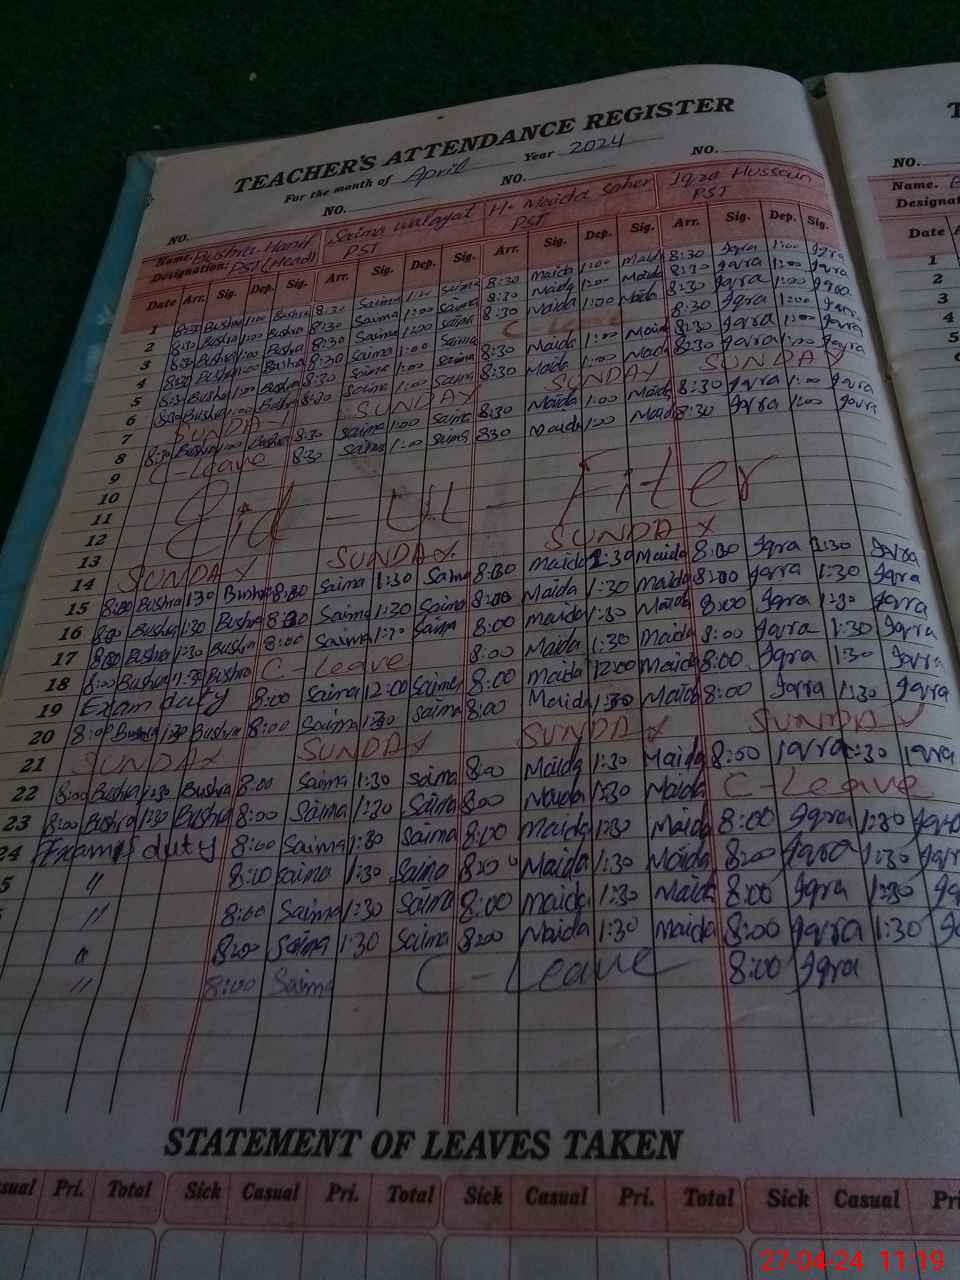 TEACHER'S ATTENDANCE REGISTER
For the month of April Year 2024
NO. NO. NO. NO. NO.
Name. Bushra Hanif Saima walayat H. Maida Saher Iqra Hussain Name.
Designation: PST (Head) PST PST PST
Date Arr. Sig. Dep. Sig. Arr. Sig. Dep. Sig. Arr. Sig. Dep. Sig. Arr. Sig. Dep. Sig. Date
1 8:30 Bushra 1:00 Bushra 8:30 Saima 1:00 Saima 8:30 Maida 1:00 Maida 8:30 Iqra 1:00 Iqra 1
2 8:30 Bushra 1:00 Bushra 8:30 Saima 1:00 Saima 8:30 Maida 1:00 Maida 8:30 Iqra 1:00 Iqra 2
3 8:30 Bushra 1:00 Bushra 8:30 Saima 1:00 Saima 8:30 Maida 1:00 Maida 8:30 Iqra 1:00 Iqra 3
4 8:30 Bushra 1:00 Bushra 8:30 Saima 1:00 Saima C-Leave 8:30 Iqra 1:00 Iqra 4
5 8:30 Bushra 1:00 Bushra 8:30 Saima 1:00 Saima 8:30 Maida 1:00 Maida 8:30 Iqra 1:00 Iqra 5
6 8:30 Bushra 1:00 Bushra 8:30 Saima 1:00 Saima 8:30 Maida 1:00 Maida 8:30 Iqra 1:00 Iqra
7 SUNDAY SUNDAY SUNDAY SUNDAY
8 8:30 Bushra 1:00 Bushra 8:30 Saima 1:00 Saima 8:30 Maida 1:00 Maida 8:30 Iqra 1:00 Iqra
9 C-Leave 8:30 Saima 1:00 Saima 8:30 Maida 1:00 Maida 8:30 Iqra 1:00 Iqra
10
11 Eid-Ul-Fiter
12
13
14 SUNDAY SUNDAY SUNDAY
15 8:00 Bushra 1:30 Bushra 8:00 Saima 1:30 Saima 8:00 Maida 1:30 Maida 8:00 Iqra 1:30 Iqra
16 8:00 Bushra 1:30 Bushra 8:00 Saima 1:30 Saima 8:00 Maida 1:30 Maida 8:00 Iqra 1:30 Iqra
17 8:00 Bushra 1:30 Bushra 8:00 Saima 1:30 Saima 8:00 Maida 1:30 Maida 8:00 Iqra 1:30 Iqra
18 8:00 Bushra 1:30 Bushra C-Leave 8:00 Maida 1:30 Maida 8:00 Iqra 1:30 Iqra
19 Exam duty 8:00 Saima 12:00 Saima 8:00 Maida 12:00 Maida 8:00 Iqra 1:30 Iqra
20 8:00 Bushra 1:30 Bushra 8:00 Saima 1:30 Saima 8:00 Maida 1:30 Maida 8:00 Iqra 1:30 Iqra
21 SUNDAY SUNDAY SUNDAY SUNDAY
22 8:00 Bushra 1:30 Bushra 8:00 Saima 1:30 Saima 8:00 Maida 1:30 Maida 8:00 Iqra 1:30 Iqra
23 8:00 Bushra 1:30 Bushra 8:00 Saima 1:30 Saima 8:00 Maida 1:30 Maida C-Leave
24 Exam duty 8:00 Saima 1:30 Saima 8:00 Maida 1:30 Maida 8:00 Iqra 1:30 Iqra
5 " 8:00 Saima 1:30 Saima 8:00 Maida 1:30 Maida 8:00 Iqra 1:30 Iqra
" 8:00 Saima 1:30 Saima 8:00 Maida 1:30 Maida 8:00 Iqra 1:30
" 8:00 Saima 1:30 Saima 8:00 Maida 1:30 Maida 8:00 Iqra 1:30
" 8:00 Saima C-Leave 8:00 Iqra
STATEMENT OF LEAVES TAKEN
sual Pri. Total Sick Casual Pri. Total Sick Casual Pri. Total Sick Casual Pri
27-04-24 11:19